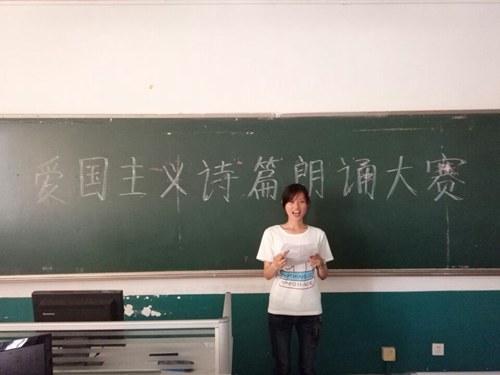 爱国主义诗篇朗诵大赛